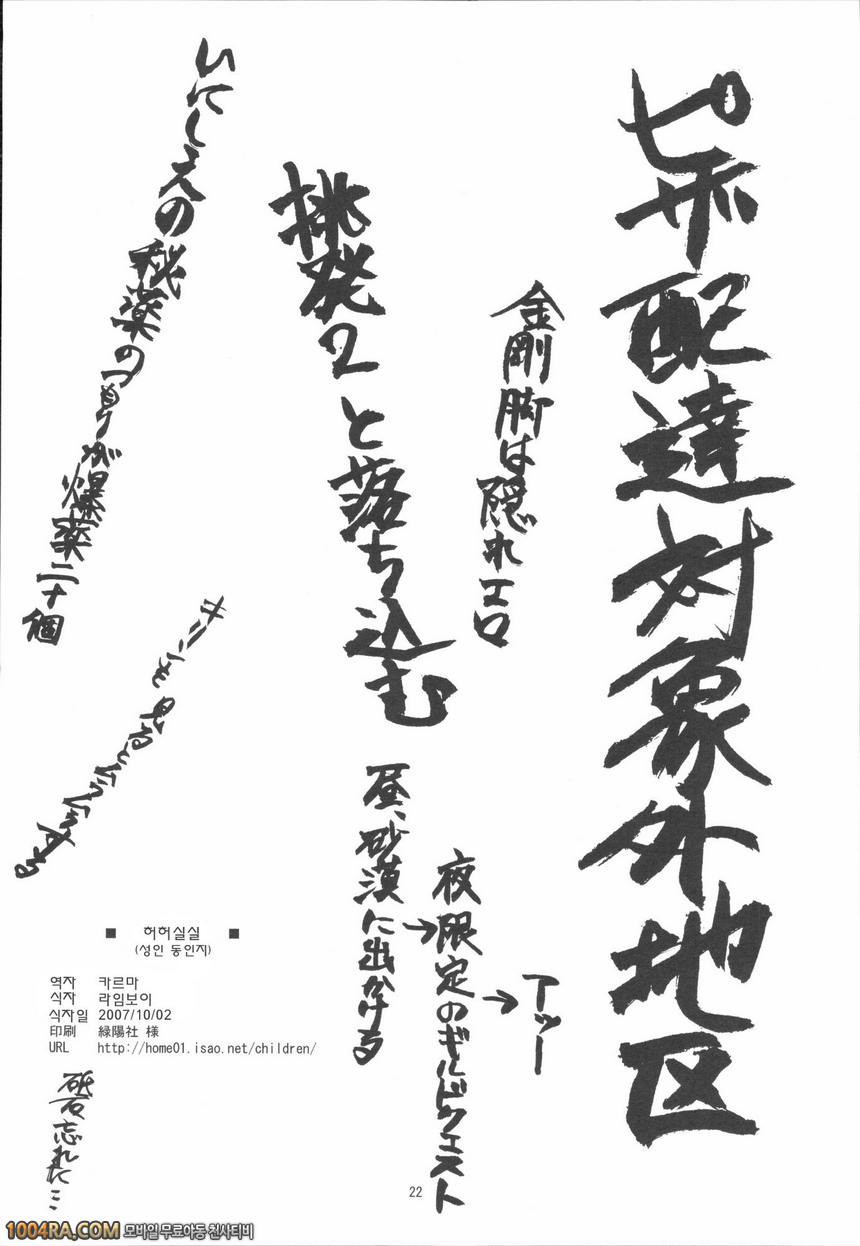 ピザ配達対象外地区
金剛脚は隠れエロ
挑発2と落ち込む
いにしえの秘薬のつもりが爆薬二十個
キリンを見るとドキドキする
昼、砂漠に出かける
→夜限定のギルドクエスト
→アッー
■ 허허실실 ■
(성인 동인지)
역자 카르마
식자 라임보이
식자일 2007/10/02
印刷 緑陽社 様
URL http://home01.isao.net/children/
砥石忘れた…
22
1004RA.COM 모바일 무료야동 천사티비